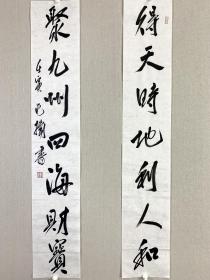 得天時地利人和
聚九州四海財寶
壬寅
書